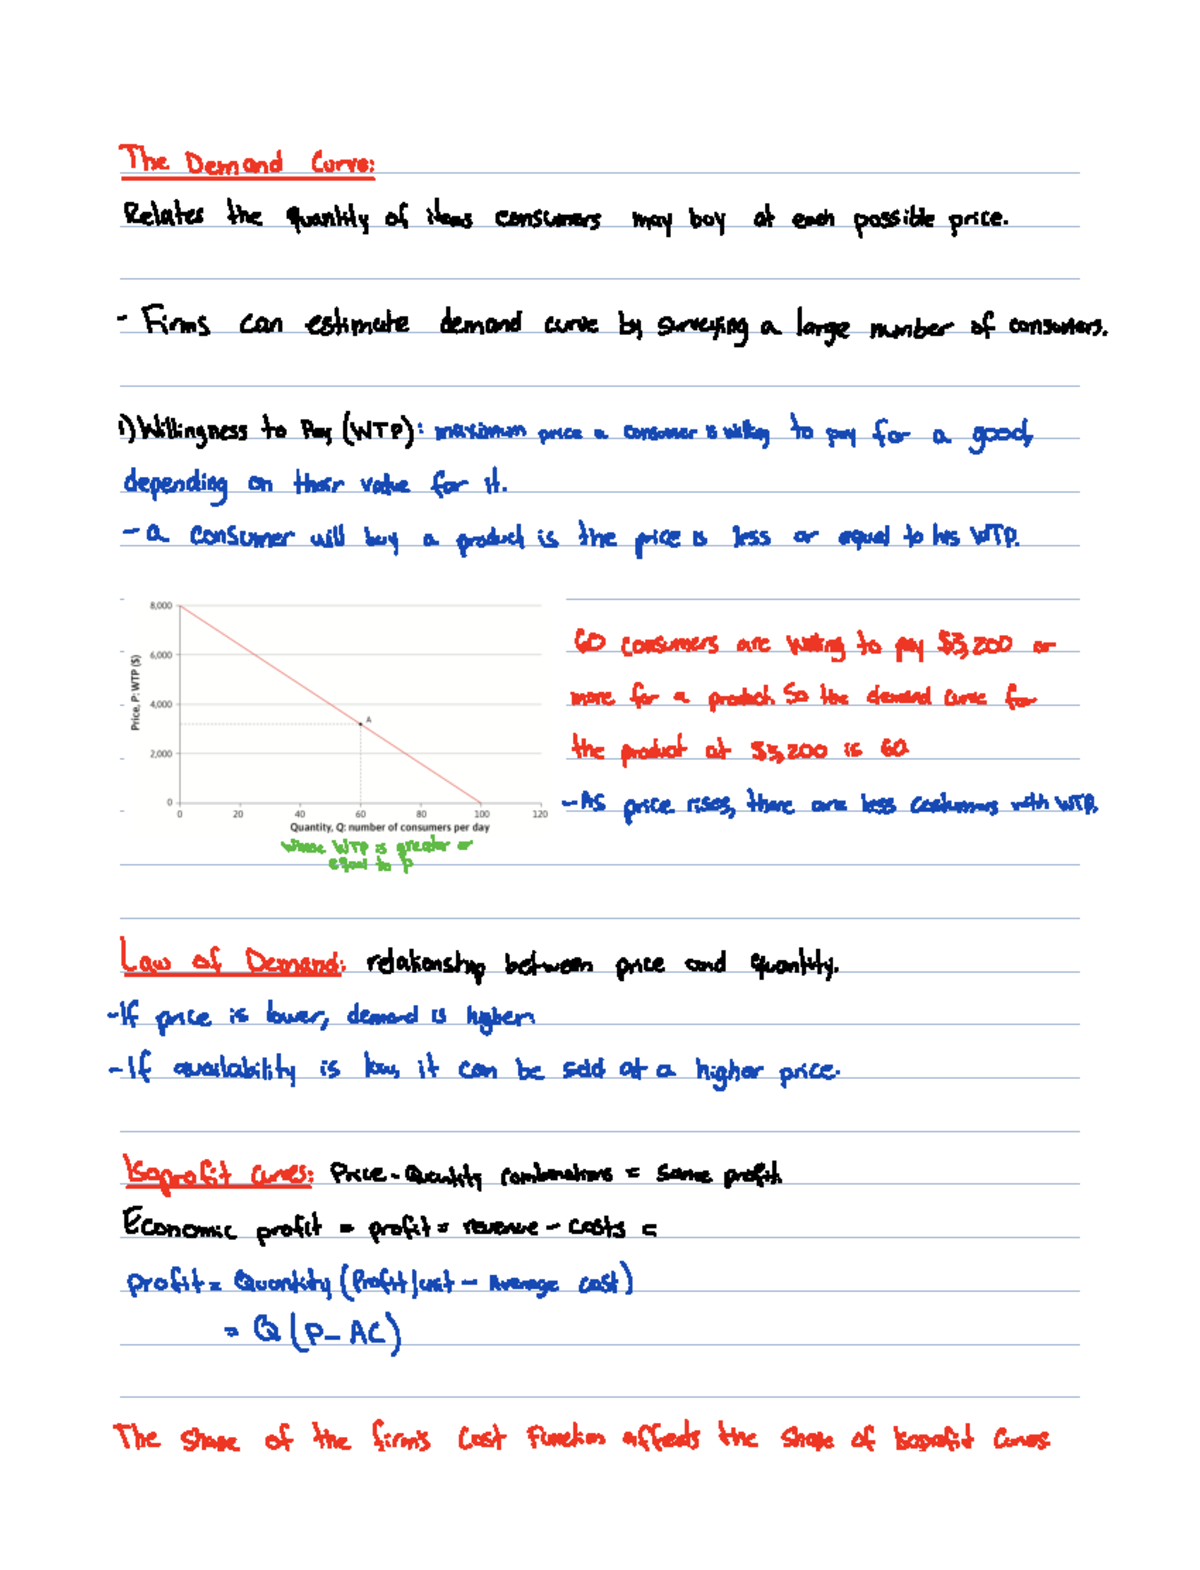 The Demand Curve:
Relates the quantity of items consumers may buy at each possible price.
- Firms can estimate demand curve by surveying a large number of consumers.
1) Willingness to Pay (WTP): maximum price a consumer is willing to pay for a good,
depending on their value for it.
- a consumer will buy a product is the price is less or equal to his WTP.
8,000
6,000
4,000
2,000
0
Price, P: WTP ($)
A
0 20 40 60 80 100 120
Quantity, Q: number of consumers per day
whose WTP is greater or
equal to p
60 consumers are willing to pay $3,200 or
more for a product. So the demand curve for
the product at $3,200 is 60
- As price rises, there are less costumers with WTP.
Law of Demand: relationship between price and quantity.
- If price is lower, demand is higher.
- If availability is low, it can be sold at a higher price.
Isoprofit Curves: Price - Quantity combinations = same profit.
Economic profit = profit = revenue - costs =
profit = Quantity (Profit - Average cost)
= Q (P - AC)
The shape of the firm's Cost Function affects the shape of Isoprofit Curves